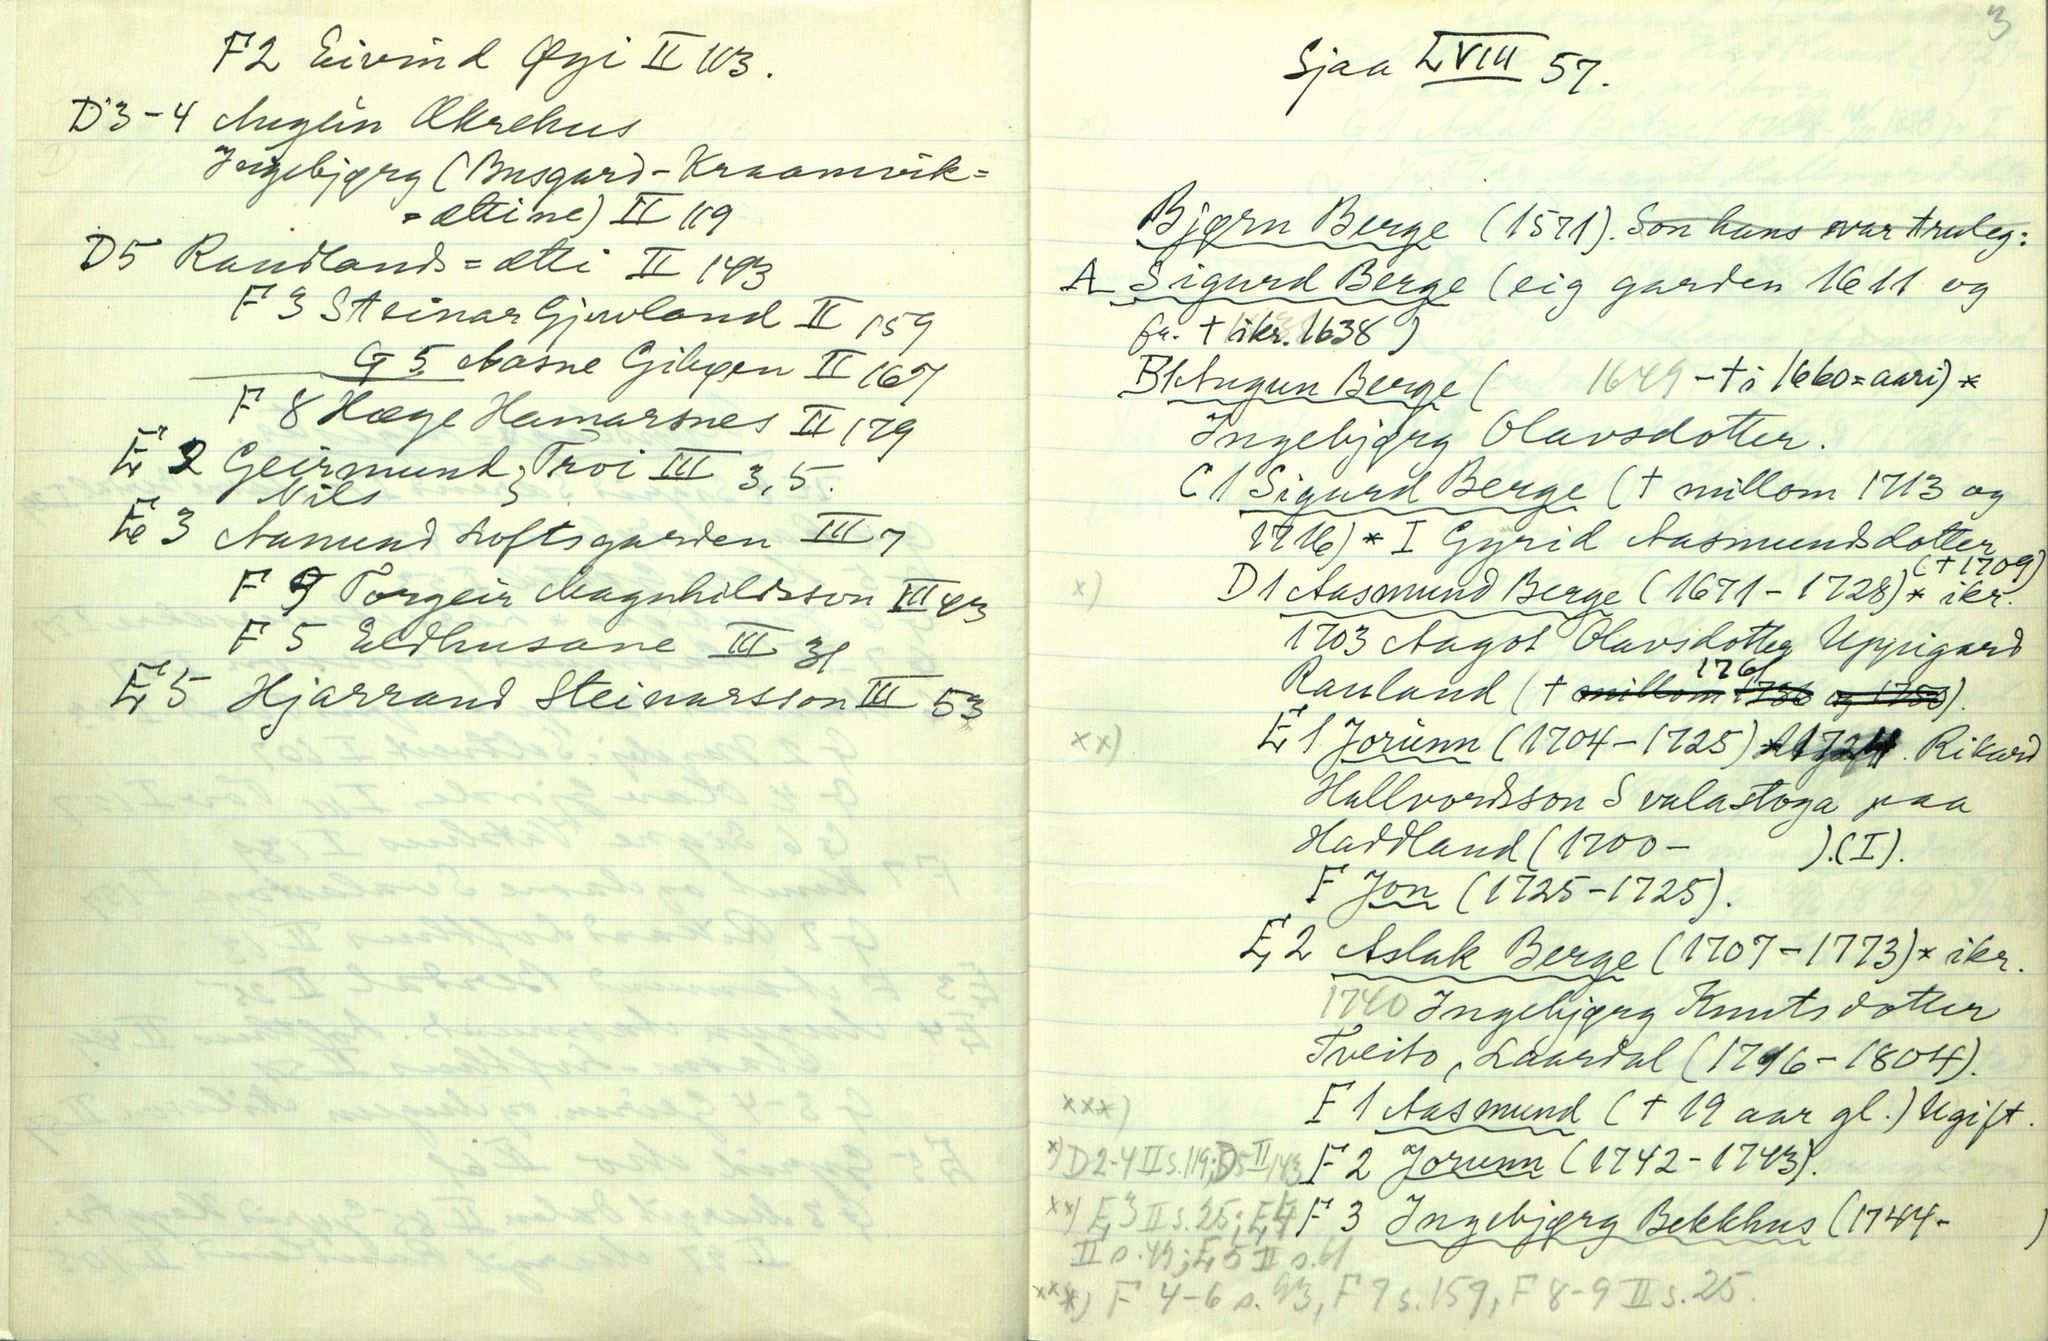 F2 Eivind Øyi II 113.
D3-4 Augein Ækrehus
Ingebjørg (Busgard-Kraamvik=
=ættine) II 119
D5 Raudlands=ætti II 143
F 3 Steinar Gjuvland II 159
G 5 Aasne Gibøen II 167
F 8 Hæge Hamarsnes II 179
E 2 Geirmund, Troi III 3, 5.
Nils
E 3 Aamund Loftsgarden III 7
F 9 Torgeir Magnhildsson III 43
F 5 Eldhusane III 31
E 5 Hjarrand Steinarsson III 53
3
Sjaa LVIII 57.
Bjørn Berge (1571). Son hans var truleg:
A Sigurd Berge (eig garden 1611 og
fr. † ikr. 1638)
B1 Augun Berge ( 1649 - † i 1660=aari) *
Ingebjørg Olavsdotter.
C 1 Sigurd Berge († millom 1713 og
1716) * I Gyrid Aasmundsdotter
(†1709)
x) D1 Aasmund Berge (1671-1728) * ikr.
1703 Aagot Olavsdotter Uppigard
1761
Rauland († millom og ).
xx) E 1 Jorunn (1704-1725) * 1724. Rikard
Hallvordsson Svalastoga paa
Haddland (1700- ).(I).
F Jon (1725-1725).
E 2 Aslak Berge (1707-1773) * ikr.
1740 Ingebjørg Knutsdotter
Tveito, Laardal (1716-1804).
xxx) F 1 Aasmund († 19 aar gl.) Ugift.
F 2 Jorunn (1742-1743).
F 3 Ingebjørg Bekkhus (1744- )
x) D2-4 II s. 119; D5 II 143
xx) E3 II s. 25; E4
II s. 49; E5 II s. 61
xxx) F 4-6 s. 93, F 7 s. 159, F 8-9 II s. 25.